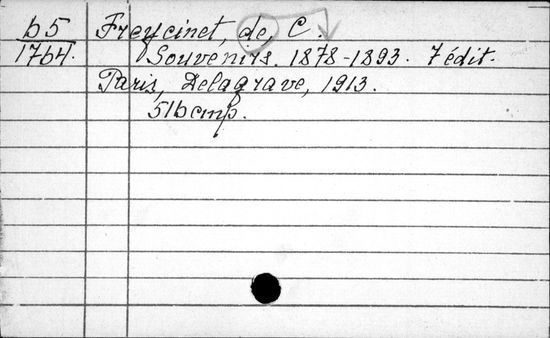 b5
1764.
Freycinet, de, C.
Souvenirs. 1878-1893. 7 édit.
Paris, Delagrave, 1913.
516 стр.